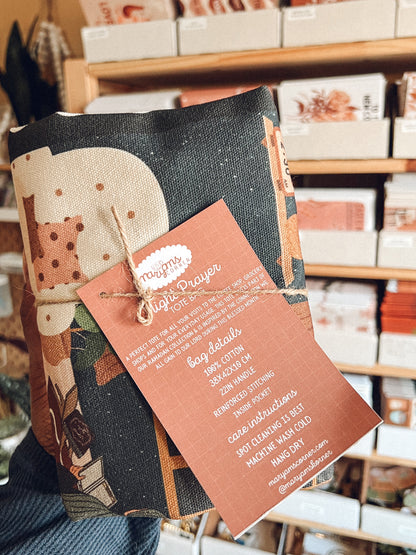 maryams
KORNER
Night Prayer
TOTE BAG
A PERFECT TOTE FOR ALL YOUR VISITS TO THE COFFEE SHOP, GROCERY
SHOPS AND FOR YOUR EVERYDAY USAGE! THIS TOTE BAG IS PART OF
OUR RAMADAN COLLECTION & IS INSPIRED BY THE
ALL OF US TO OUR LORD DURING THIS BLESSED MONTH.
bag details
100% COTTON
38X42X10 CM
22IN HANDLE
REINFORCED STITCHING
INSIDE POCKET
care instructions
SPOT CLEANING IS BEST
MACHINE WASH COLD
HANG DRY
maryamskorner.com
@maryamskorner